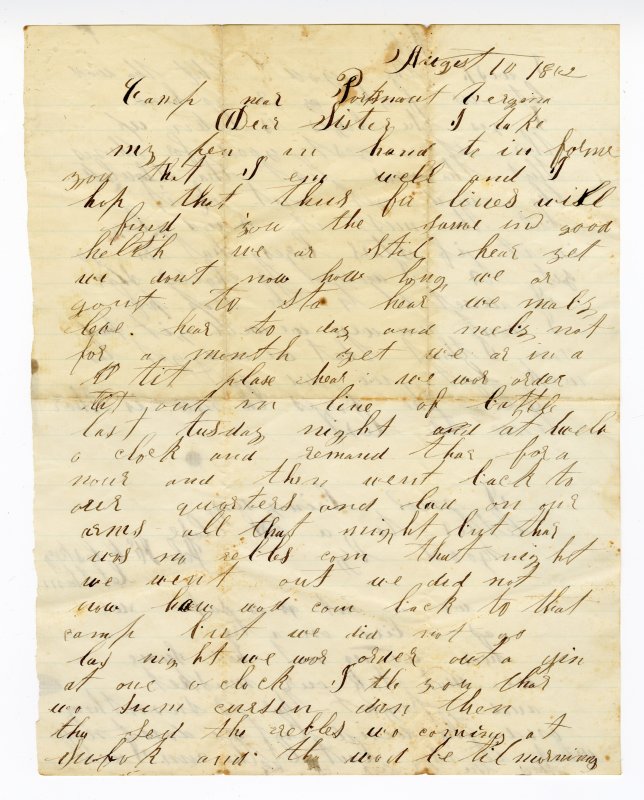 August 10 1862
Camp near Portsmout Vergina
Dear Sister I take
my pen in hand to in forme
you that I em well and I
hop that thus fu lines will
find you the same in good
helth we ar stil hear yet
we dont now how long we ar
gout to sta hear we maby
leve hear to day and meby not
for a month yet we ar in a
tit plase hear we wor order
out in line of battle
last tusday night and at twelv
o clock and remand thar for a
nour and then went back to
our quarters and lad on our
arms all that night but thar
was no rebles com that night
we went out we did not
now how wod com back to that
camp but we did not go
las night we wor order out a gin
at one o clock I tel you thar
wos sum cursen dan then
thy sed the rebles wo coming at
and tha wod be til morning